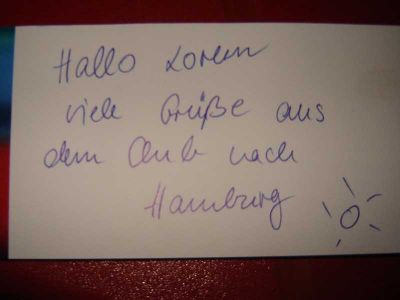 Hallo Lorem
viele Grüße aus
dem Club nach
Hamburg